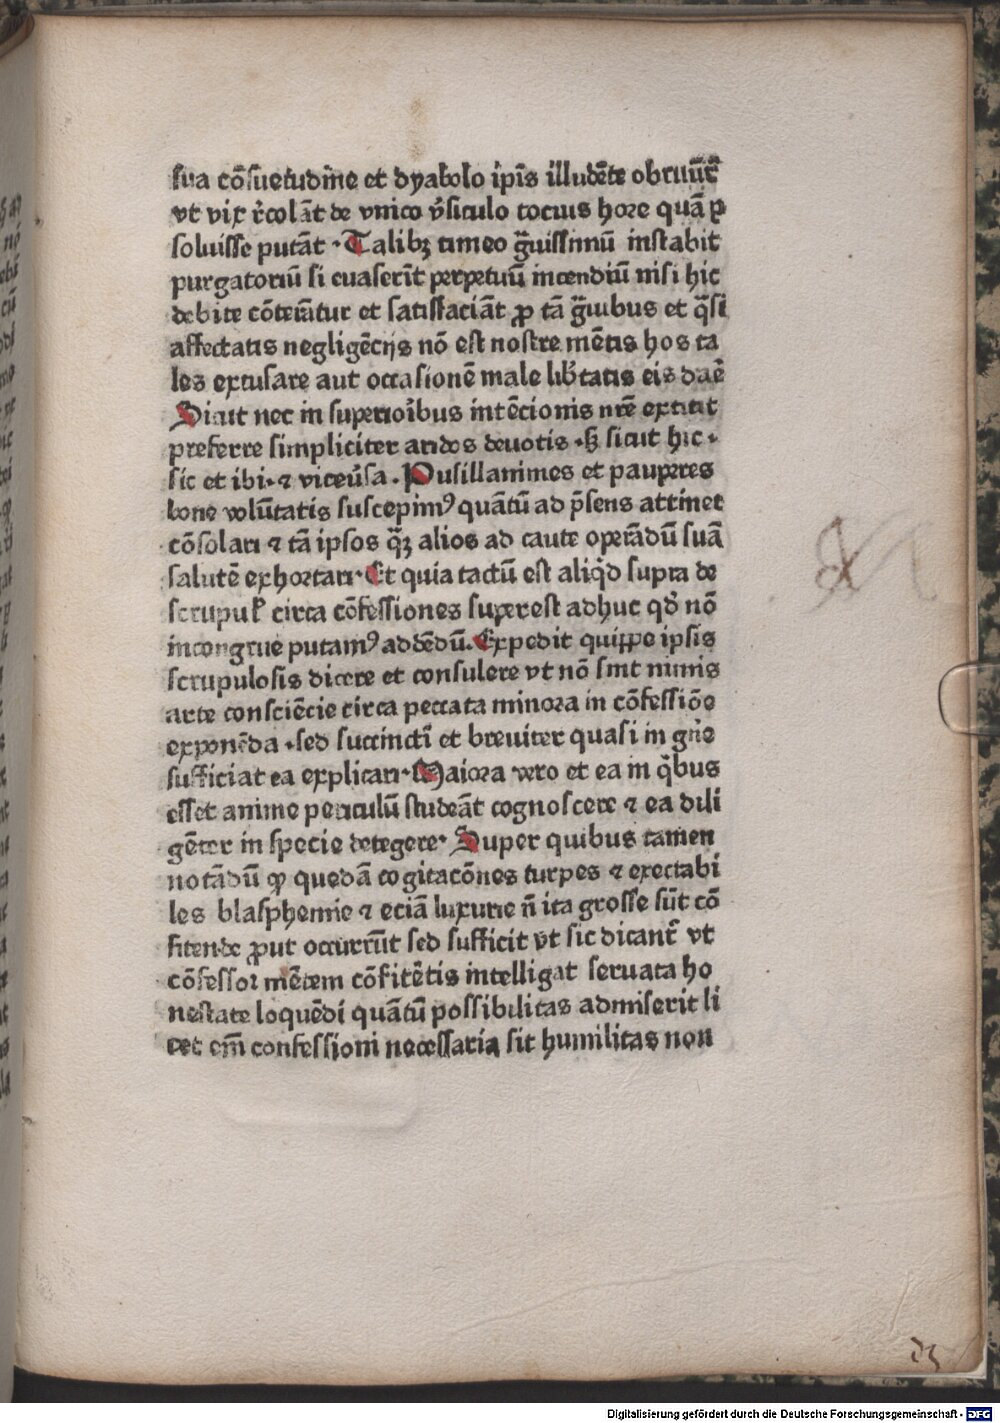 sua cōsuetudīe et dyabolo ip̄is illudēte obruūt᷑
vt vix r̄colāt de vnico v̄siculo tocius hore quā ꝑ
soluisse putāt · Talibꝫ timeo g̃uissimū instabit
purgatoriū si euaserīt perpetuū incendiū nisi hic
debite cōterāt᷑ur et satisfaciāt ꝓ tā g̃uibus et q̃si
affectatis negligēcijs nō est nostre mētis hos ta
les excusare aut occasionē male lib̄tatis eis daē
Sicut nec in superiorībus intēcionis nr̄e extitit
preferre simpliciter aridos deuotis · sꝫ sicut hic ·
sic et ibi · ⁊ vicev̄sa · Pusillanimes et pauperes
bone volūtatis suscepimꝰ quātū ad p̄sens attinet
cōsolari ⁊ tā ipsos q̃ꝫ alios ad caute operādū suā
salutē exhortari · Et quia tactū est aliq̄d supra de
scrupuł circa cōfessiones superest adhuc qd̄ nō
incongrue putamꝰ addēdū. Expedit quippe ipsis
scrupulosis dicere et consulere vt nō sint nimis
arte consciēcie circa peccata minora in cōfessiōe
exponēda · sed succincti et breuiter quasi in gn̄e
sufficiat ea explicari · Maiora vero et ea in q̄bus
esset anime periculū studeāt cognoscere ⁊ ea dili
gēter in specie detegere · Super quibus tamen
notādū ꝙ quedā cogitacōnes turpes ⁊ execrabi
les blasphemie ⁊ eciā luxurie n̄ ita grosse sūt cō
fitende ꝓut occurrūt sed sufficit vt sic dicant᷑ vt
cōfessor mētem cōfitētis intelligat seruata ho
nestate loquēdi quātū possibilitas admiserit li
cet em̄ confessioni necessaria sit humilitas non
Digitalisierung gefördert durch die Deutsche Forschungsgemeinschaft - DFG